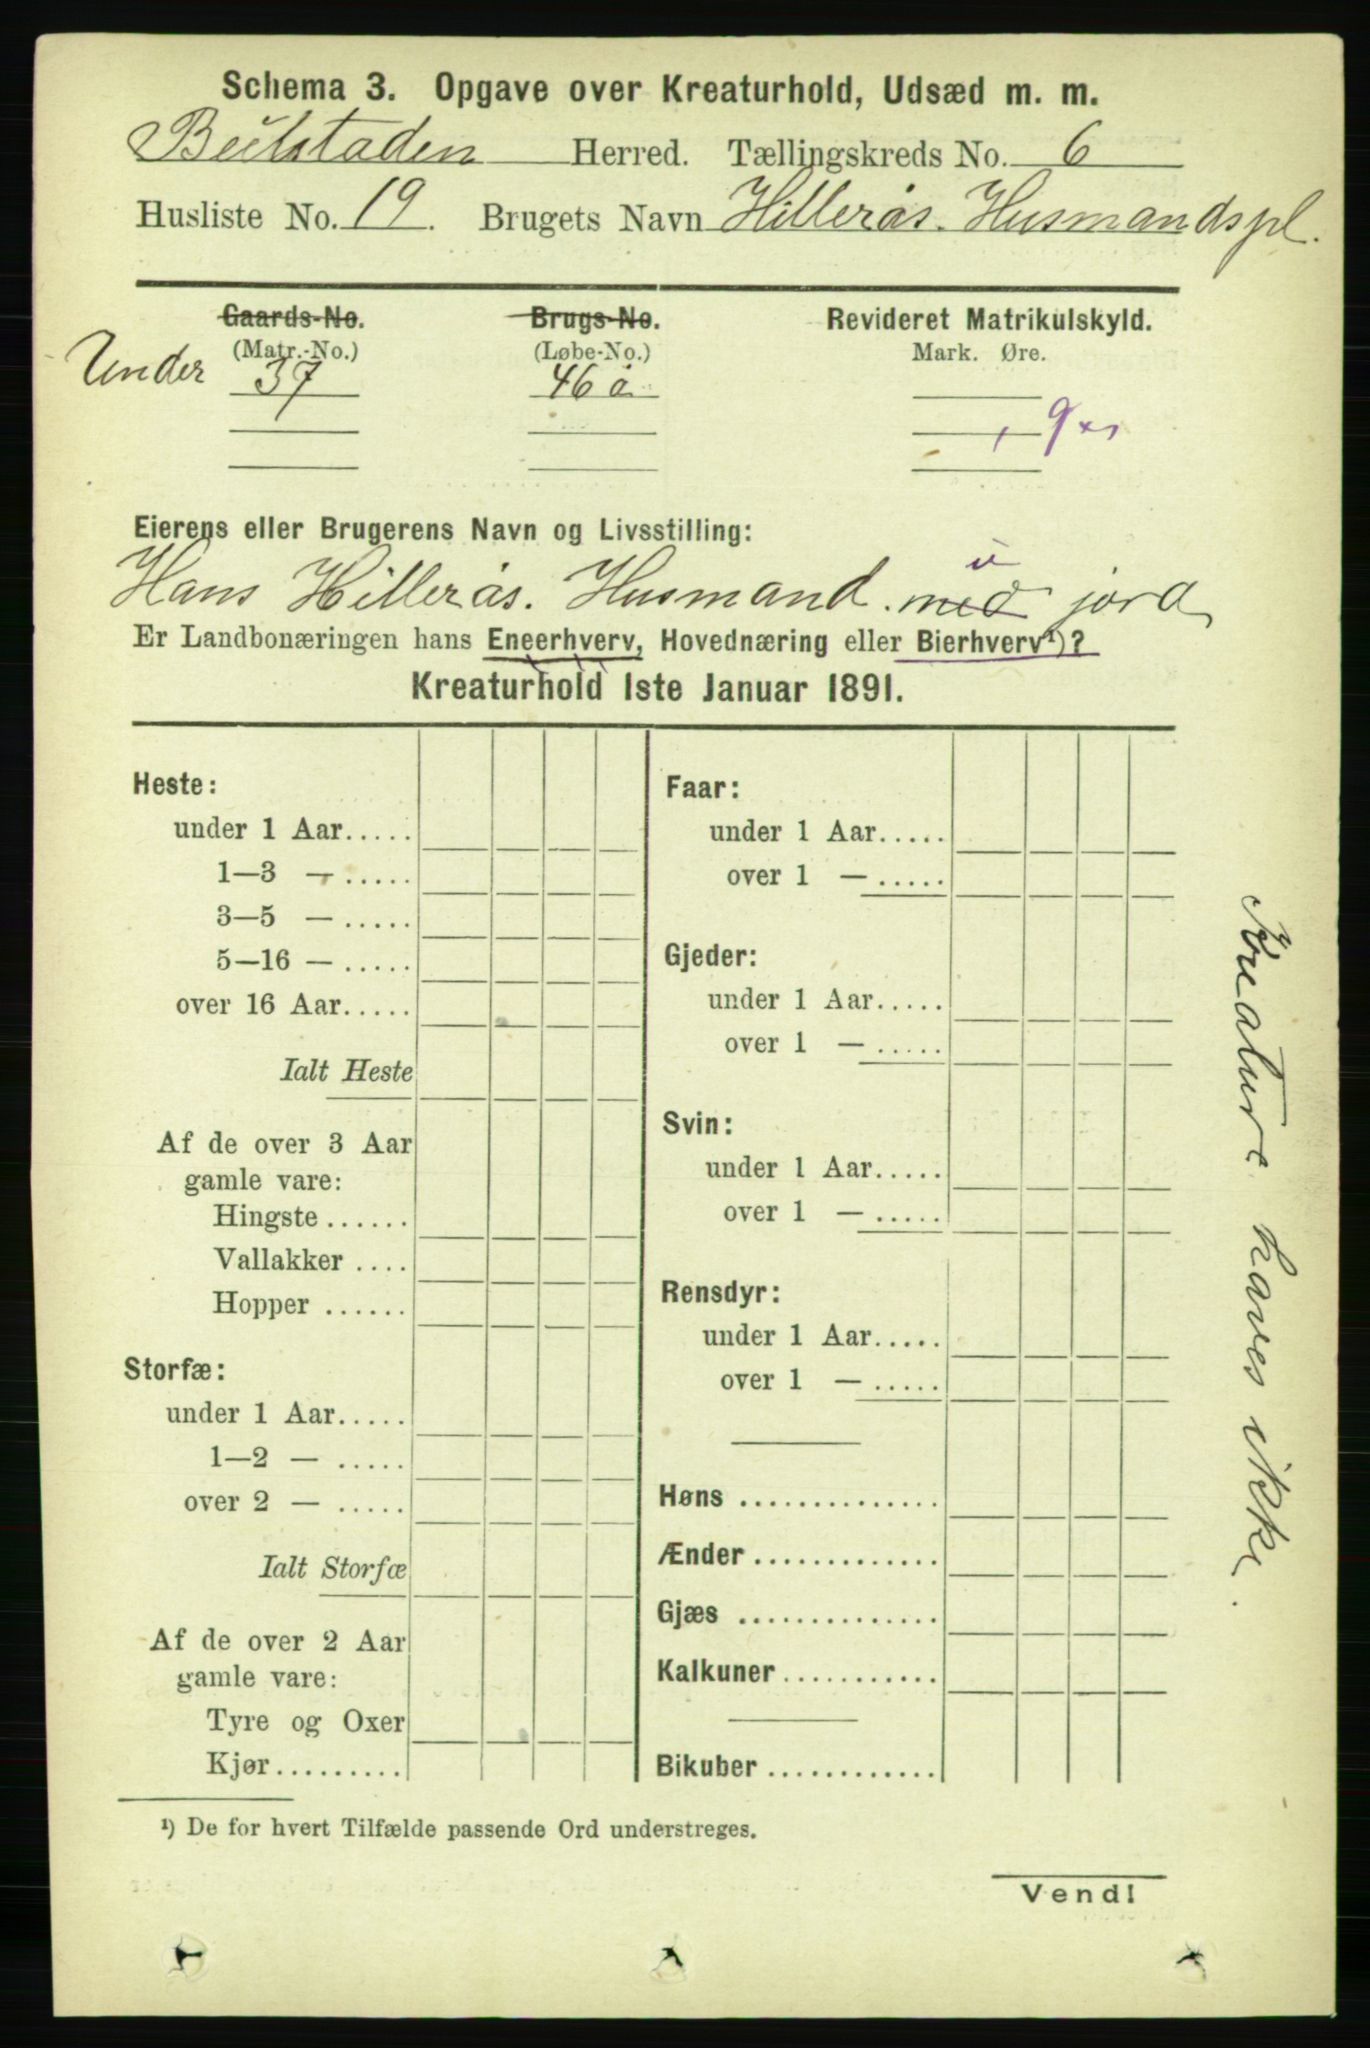 Schema 3. Opgave over Kreaturhold, Udsæd m. m.
Beitstaden Herred. Tællingskreds No. 6
Husliste No. 19. Brugets Navn Hillerås. Husmandspl.
Gaards-No. Brugs-No. Revideret Matrikulskyld.
(Matr.-No.) (Løbe-No.) Mark. Øre.
Under 37 46 a
Eierens eller Brugerens Navn og Livsstilling:
u
Hans Hillerås. Husmand med jord
Er Landbonæringen hans Eneerhverv, Hovednæring eller Bierhverv¹)?
Kreaturhold 1ste Januar 1891.
Heste:
under 1 Aar.....
1—3 — .....
3—5 — .....
5—16 — .....
over 16 Aar.....
Ialt Heste
Af de over 3 Aar
gamle vare:
Hingste ......
Vallakker ....
Hopper ......
Storfæ:
under 1 Aar.....
1—2 — .....
over 2 — .....
Ialt Storfæ
Af de over 2 Aar
gamle vare:
Tyre og Oxer
Kjør.........
Faar:
under 1 Aar.....
over 1 — .....
Gjeder:
under 1 Aar.....
over 1 — .....
Svin:
under 1 Aar.....
over 1 — .....
Rensdyr:
under 1 Aar.....
over 1 — .....
Høns ..............
Ænder .............
Gjæs ..............
Kalkuner...........
Bikuber ............
Kreature haves ikke.
¹) De for hvert Tilfælde passende Ord understreges.
Vend!